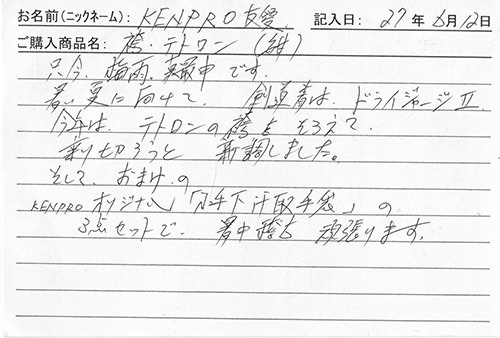 お名前(ニックネーム): KENPRO友愛 記入日: 27年6月12日
ご購入商品名: 袴・テトロン(紺)
只今、梅雨、真最中です。
暑い夏に向けて、剣道着は、ドライジャージⅡ
今年は、テトロンの袴をそろえて、
乗り切ろうと新調しました。
そして、おまけの
KENPROオリジナル「小手下汗取手袋」の
3点セットで、暑中稽古頑張ります。